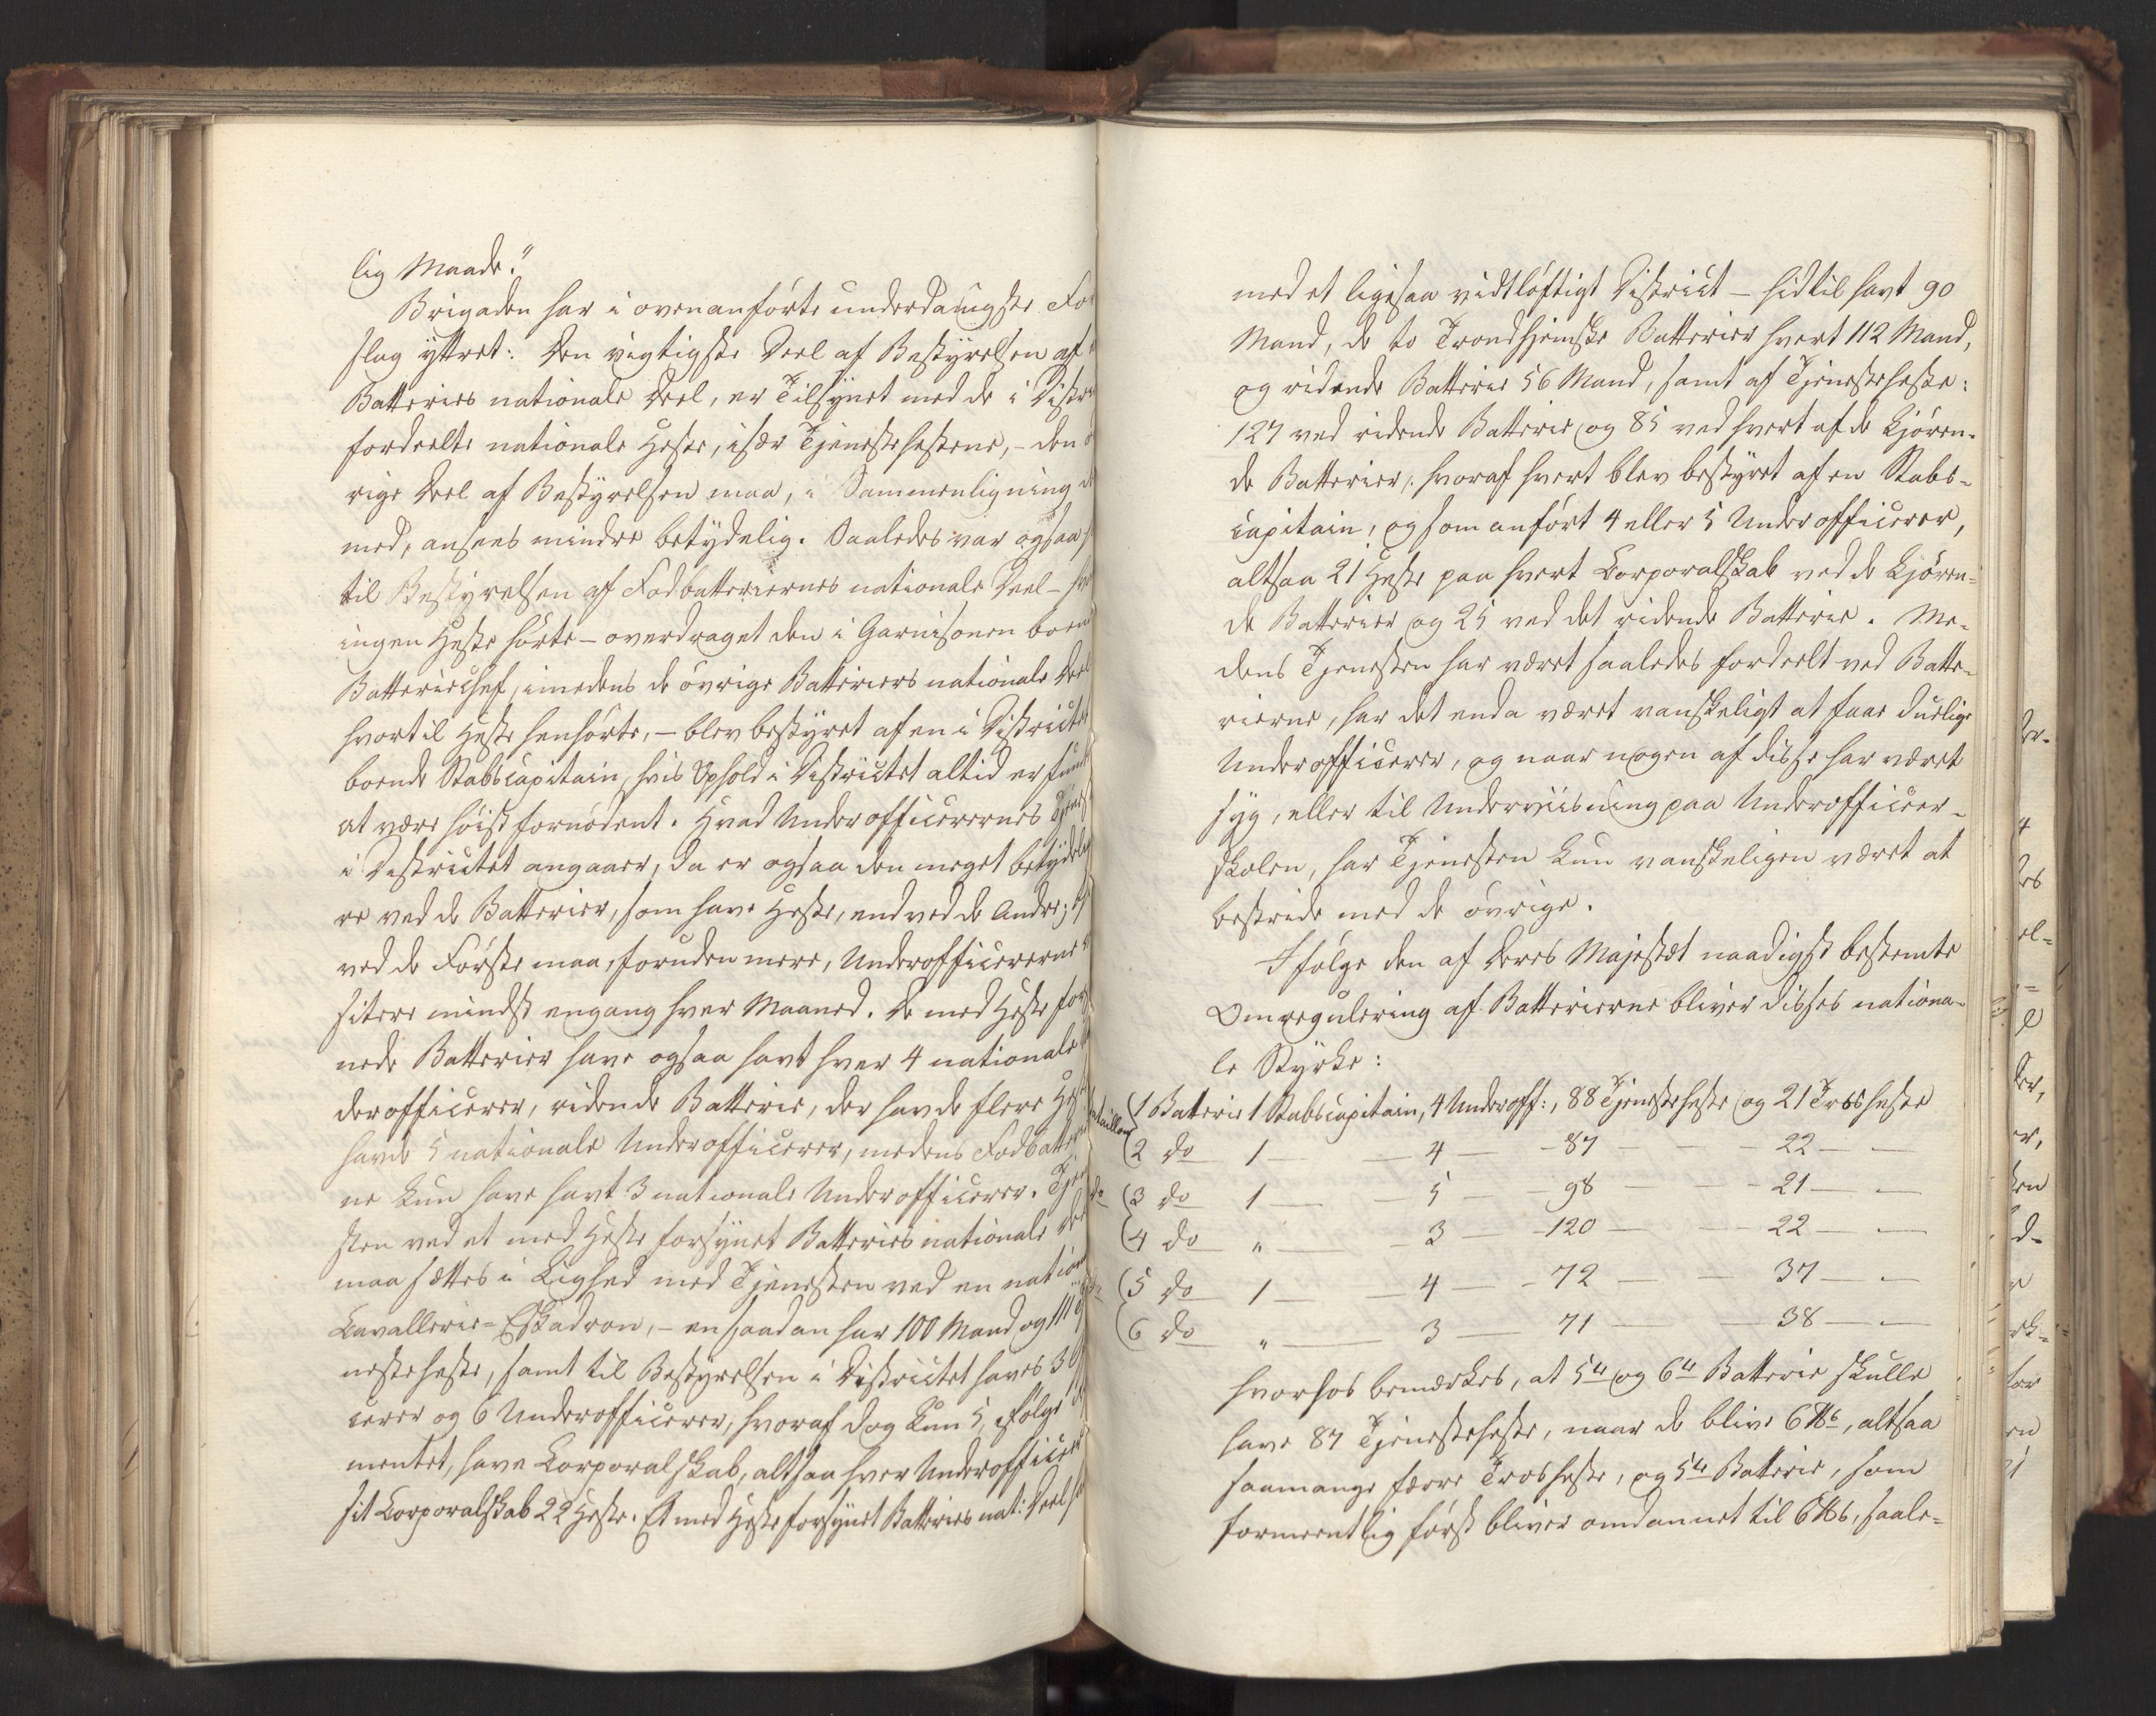 lig Maade."
Brigaden har i ovenanförte underdanigste For
slag yttret: Den vigtigste Deel af Bestyrelsen af
Batteries nationale Deel, er Tilsynet med de i Distri
fordeelte nationale Heste, især Tjenestehestene, - den ö
rige Deel af Bestyrelsen maa, i Sammenligning de
med, ansees mindre betydelig. Saaledes var ogsaa
til Bestyrelsen af Fodbatteriernes nationale Deel - hvor
ingen Heste hörte - overdraget den i Garnisonen boen
Batteriechef, imedens de övrige Batteriers nationale Deel
hvortil Heste henhörte, - blev bestyret af en i Districtet
boende Stabscapitain, hvis Ophold i Districtet altid er fund
at være höist fornödent. Hvad Underofficerernes Tjenes
i Districtet angaaer, da er ogsaa den meget betydeli
re ved de Batterier, som have Heste, end ved de Andre;
ved de Förste maa, foruden mere, Underofficererne
sitere mindst engang hver Maaned. De med Heste for
nede Batterier have ogsaa havt hver 4 nationale
derofficerer, ridende Batterie, der havde flere He
havde 5 nationale Underofficerer, medens Fodbatteri
ne kun have havt 3 nationale Underofficerer. Tjen
sten ved et med Heste forsynet Batteries nationale Deel
maa sættes i Lighed med Tjenesten ved en nation
Cavallerie-Eskadron, - en saadan har 100 Mand og 111
nesteheste, samt til Bestyrelsen i Districtet haves 3
cerer og 6 Underofficerer, hvoraf dog kun 5, ifölge
mentet, have Corporalskab, altsaa hver Underofficer
sit Corporalskab 22 Heste. Et med Heste forsynet Batteries nat: Deel
med et ligesaa vidtlöftigt District - hidtil havt 90
Mand, de to Trondhjemske Batterier hvert 112 Mand,
og ridende Batterie 56 Mand, samt af Tjenesteheste:
127 ved ridende Batterie og 85 ved hvert af de kjören-
de Batterier, hvoraf hvert blev bestyret af en Stabs-
capitain, og som anfört 4 eller 5 Underofficerer,
altsaa 21 Heste paa hvert Corporalskab ved de kjören-
de Batterier og 25 ved det ridende Batterie. Me-
dens Tjenesten har været saaledes fordeelt ved Batte-
rierne, har det enda været vanskeligt at faae duelige
Underofficerer, og naar nogen af disse har været
syg, eller til Underviisning paa Underofficeer-
skolen, har Tjenesten kun vanskeligen været at
bestride med de övrige.
Ifölge den af Deres Majestæt naadigst bestemte
Omregulering af Batterierne bliver disses nationa-
le Styrke:
1 Batterie 1 Stabscapitain, 4 Underoff:, 88 Tjenesteheste og 21 Trosheste
2 do 1 - - 4 - - 87 - - - 22 - -
do 3 do 1 - - 5 - 98 - - - 21 - -
4 do " - - 3 - - 120 - - - 22 - -
5 do 1 - - 4 - - 72 - - 37 - -
6 do " - - 3 - 71 - - 38 - -
hvorhos bemærkes, at 5te og 6te Batterie skulle
have 87 Tjenesteheste, naar de blive 6 ℔s, altsaa
saamange færre Trosheste, og 5te Batterie, som
formeentlig först bliver omdannet til 6 ℔s, saale-